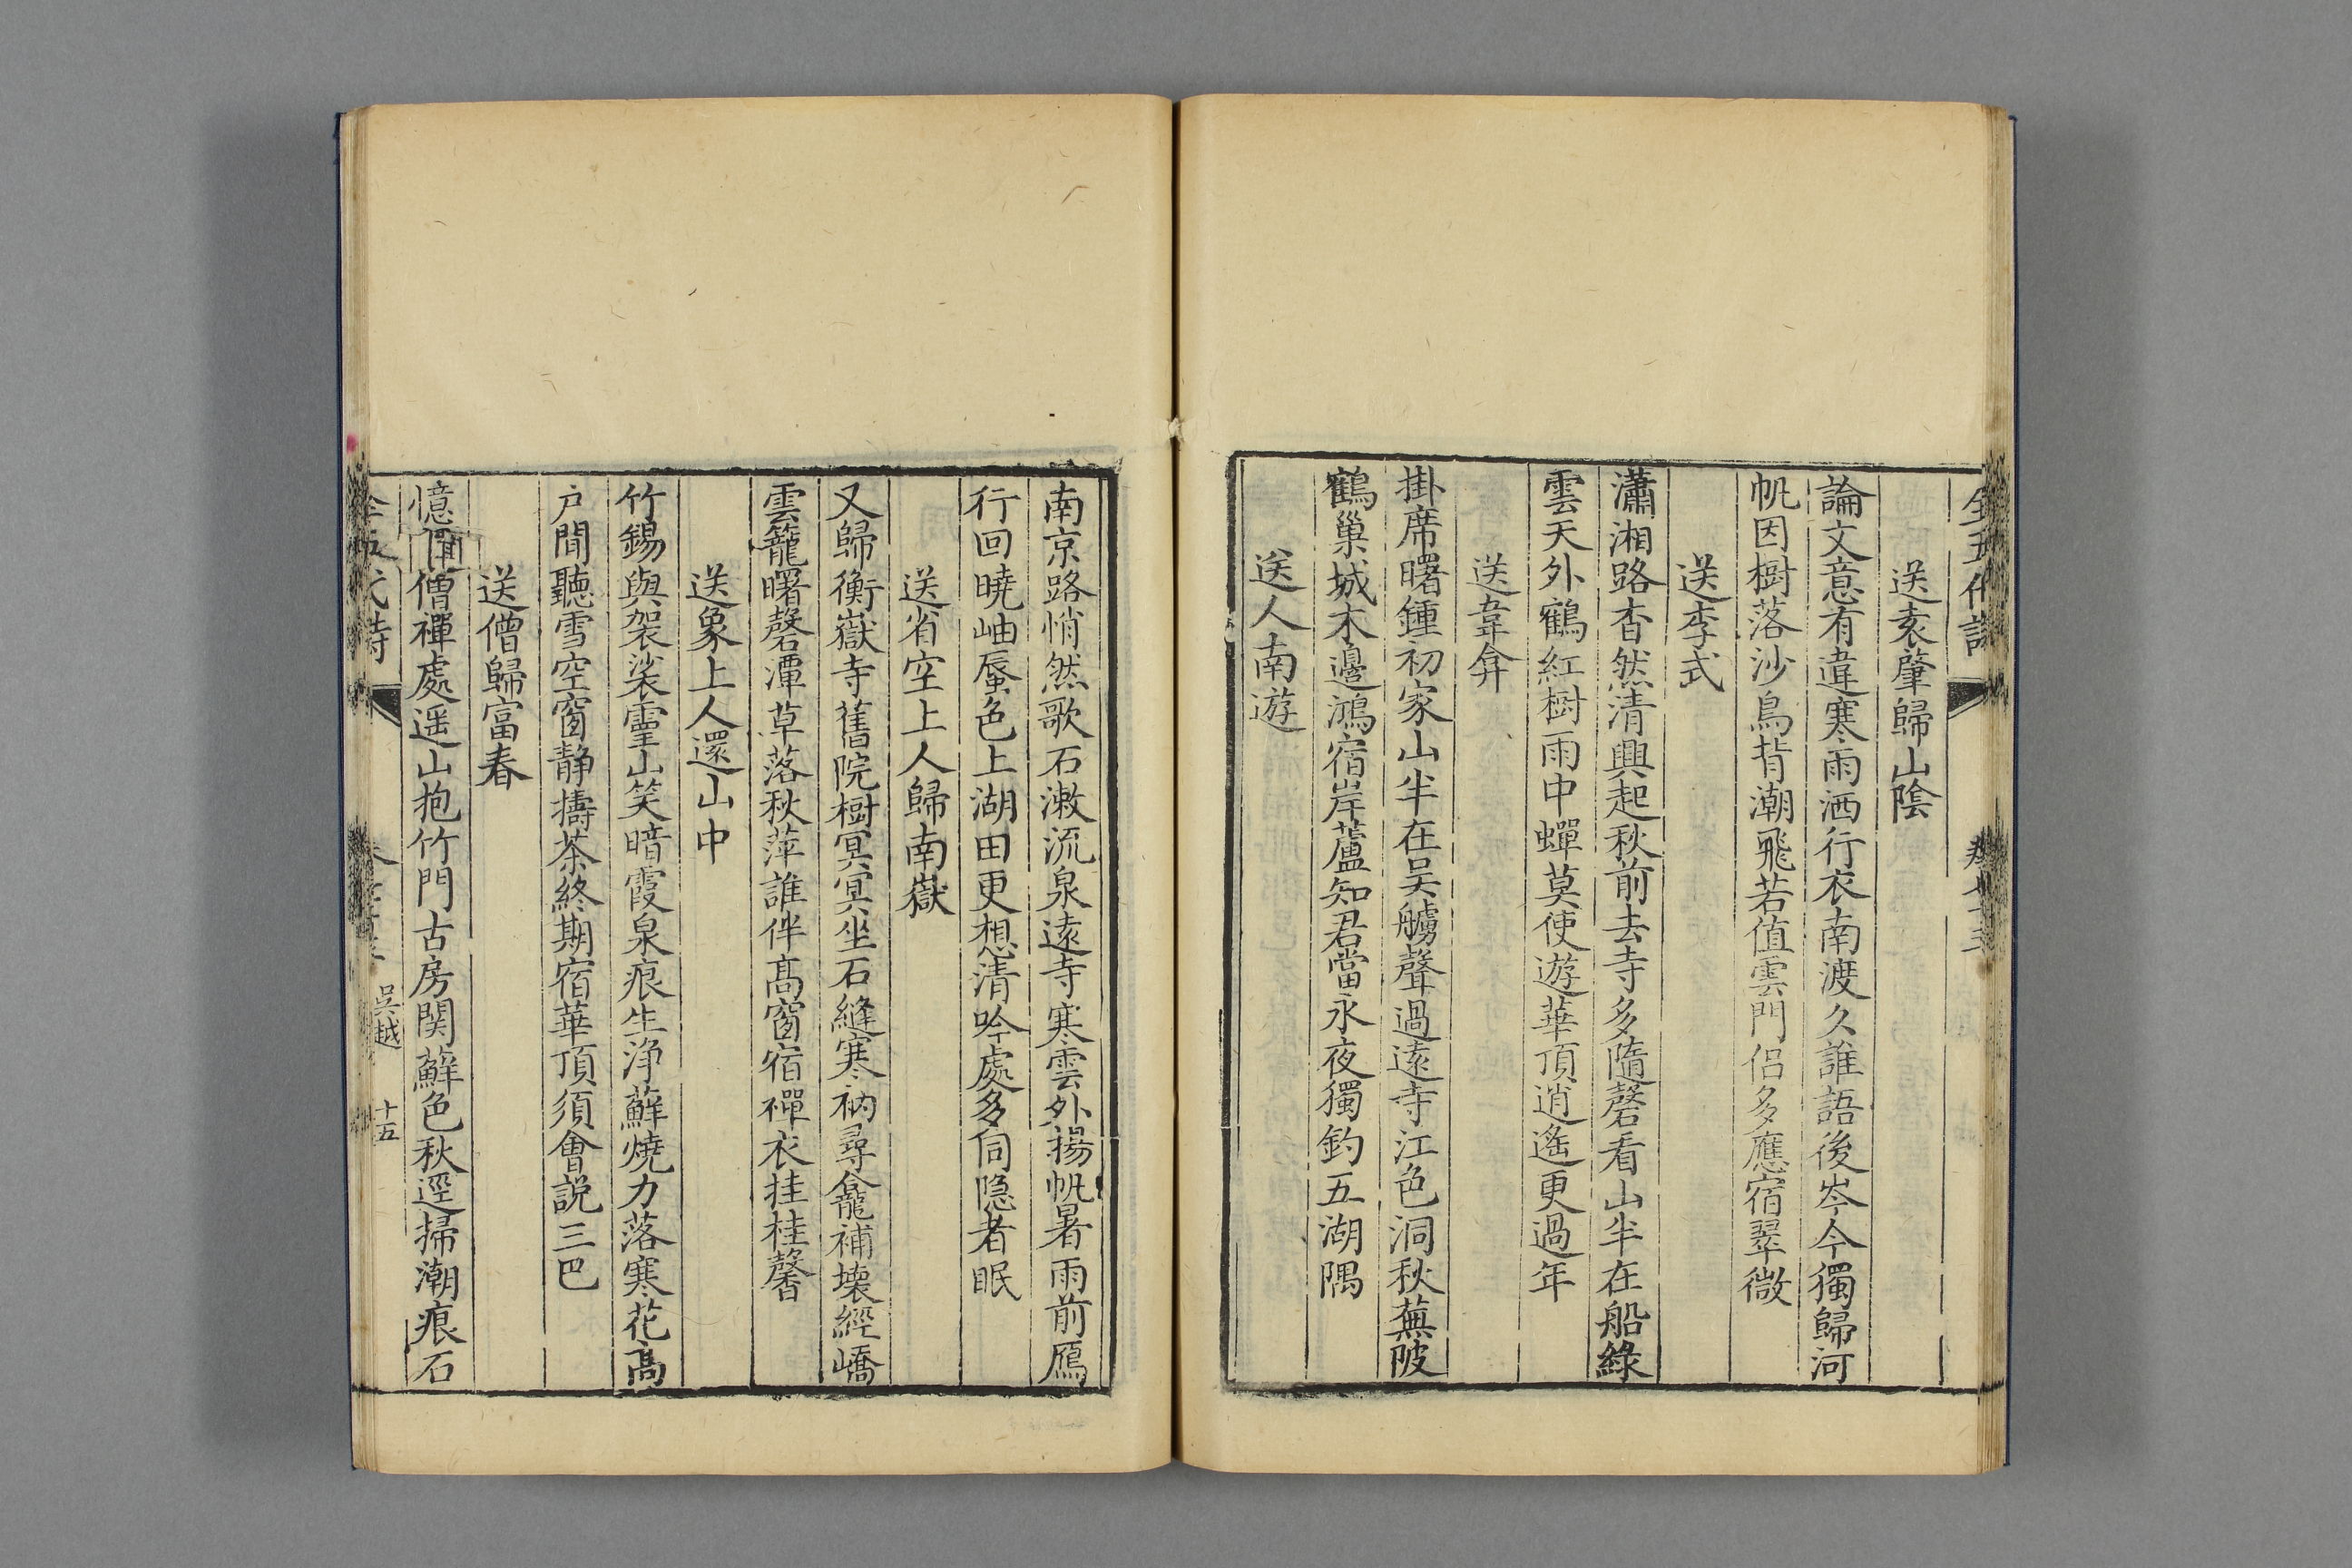 送袁肇歸山陰
論文意有違寒雨洒行衣南渡久誰語後岑今獨歸河
帆因樹落沙鳥背潮飛若值雲門侶多應宿翠微
送李式
瀟湘路杳然清興起秋前去寺多隨磬看山半在船綠
雲天外鶴紅樹雨中蟬莫使遊華頂逍遙更過年
送韋弇
掛席曙鍾初家山半在吴艣聲過遠寺江色洞秋蕪陂
鶴巢城木邊鴻宿岸蘆知君當永夜獨釣五湖隅
送人南遊
南京路悄然歌石漱流泉遠寺寒雲外揚帆暑雨前鴈
行回曉岫蜃色上湖田更想清吟處多伺隐者眠
送省空上人歸南嶽
又歸衡嶽寺舊院樹冥冥坐石縫寒衲尋龕補壊經嶠
雲籠曙磬潭草落秋萍誰伴髙窗宿禪衣挂桂馨
送象上人還山中
竹錫與袈裟靈山笑暗霞泉痕生浄蘚燒力落寒花髙
户閒聽雪空窗静擣茶終期宿華頂須會説三巴
送僧歸富春
憶聞僧禪處遥山抱竹門古房関蘚色秋逕掃潮痕石
吳越 十五